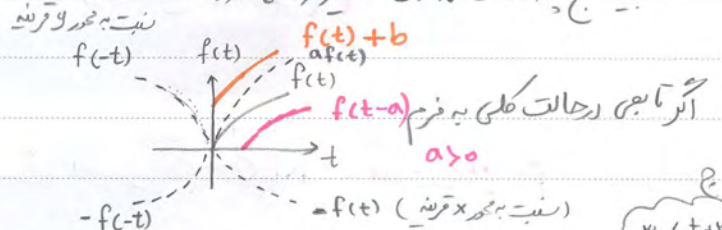 نسبت به محور y قرینه
f(-t)
f(t)
f(t)+b
af(t)
f(t)
f(t-a)
a>0
اگر تابعی در حالت کلی به فرم
t
-f(-t)
-f(t) (نسبت به محور x قرینه)